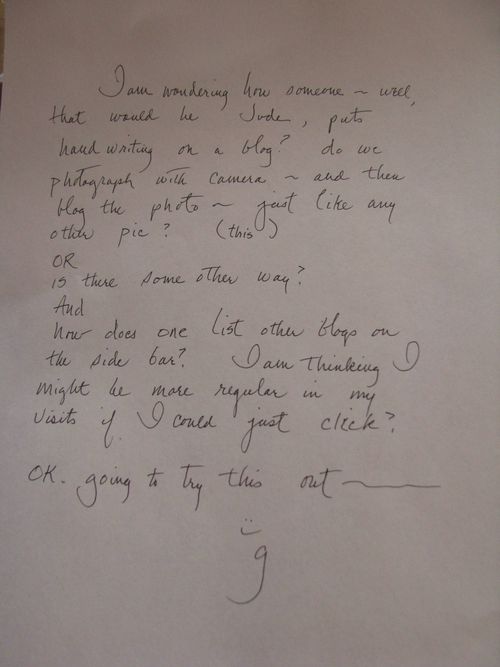 I am wondering how someone ~ well,
that would be Jude, puts
handwriting on a blog? do we
photograph with camera ~ and then
blog the photo ~ just like any
other pic? (this)
OR
is there some other way?
And
how does one list other blogs on
the side bar? I am Thinking I
might be more regular in my
visits if I could just click?
OK. going to try this out ———
:)
g